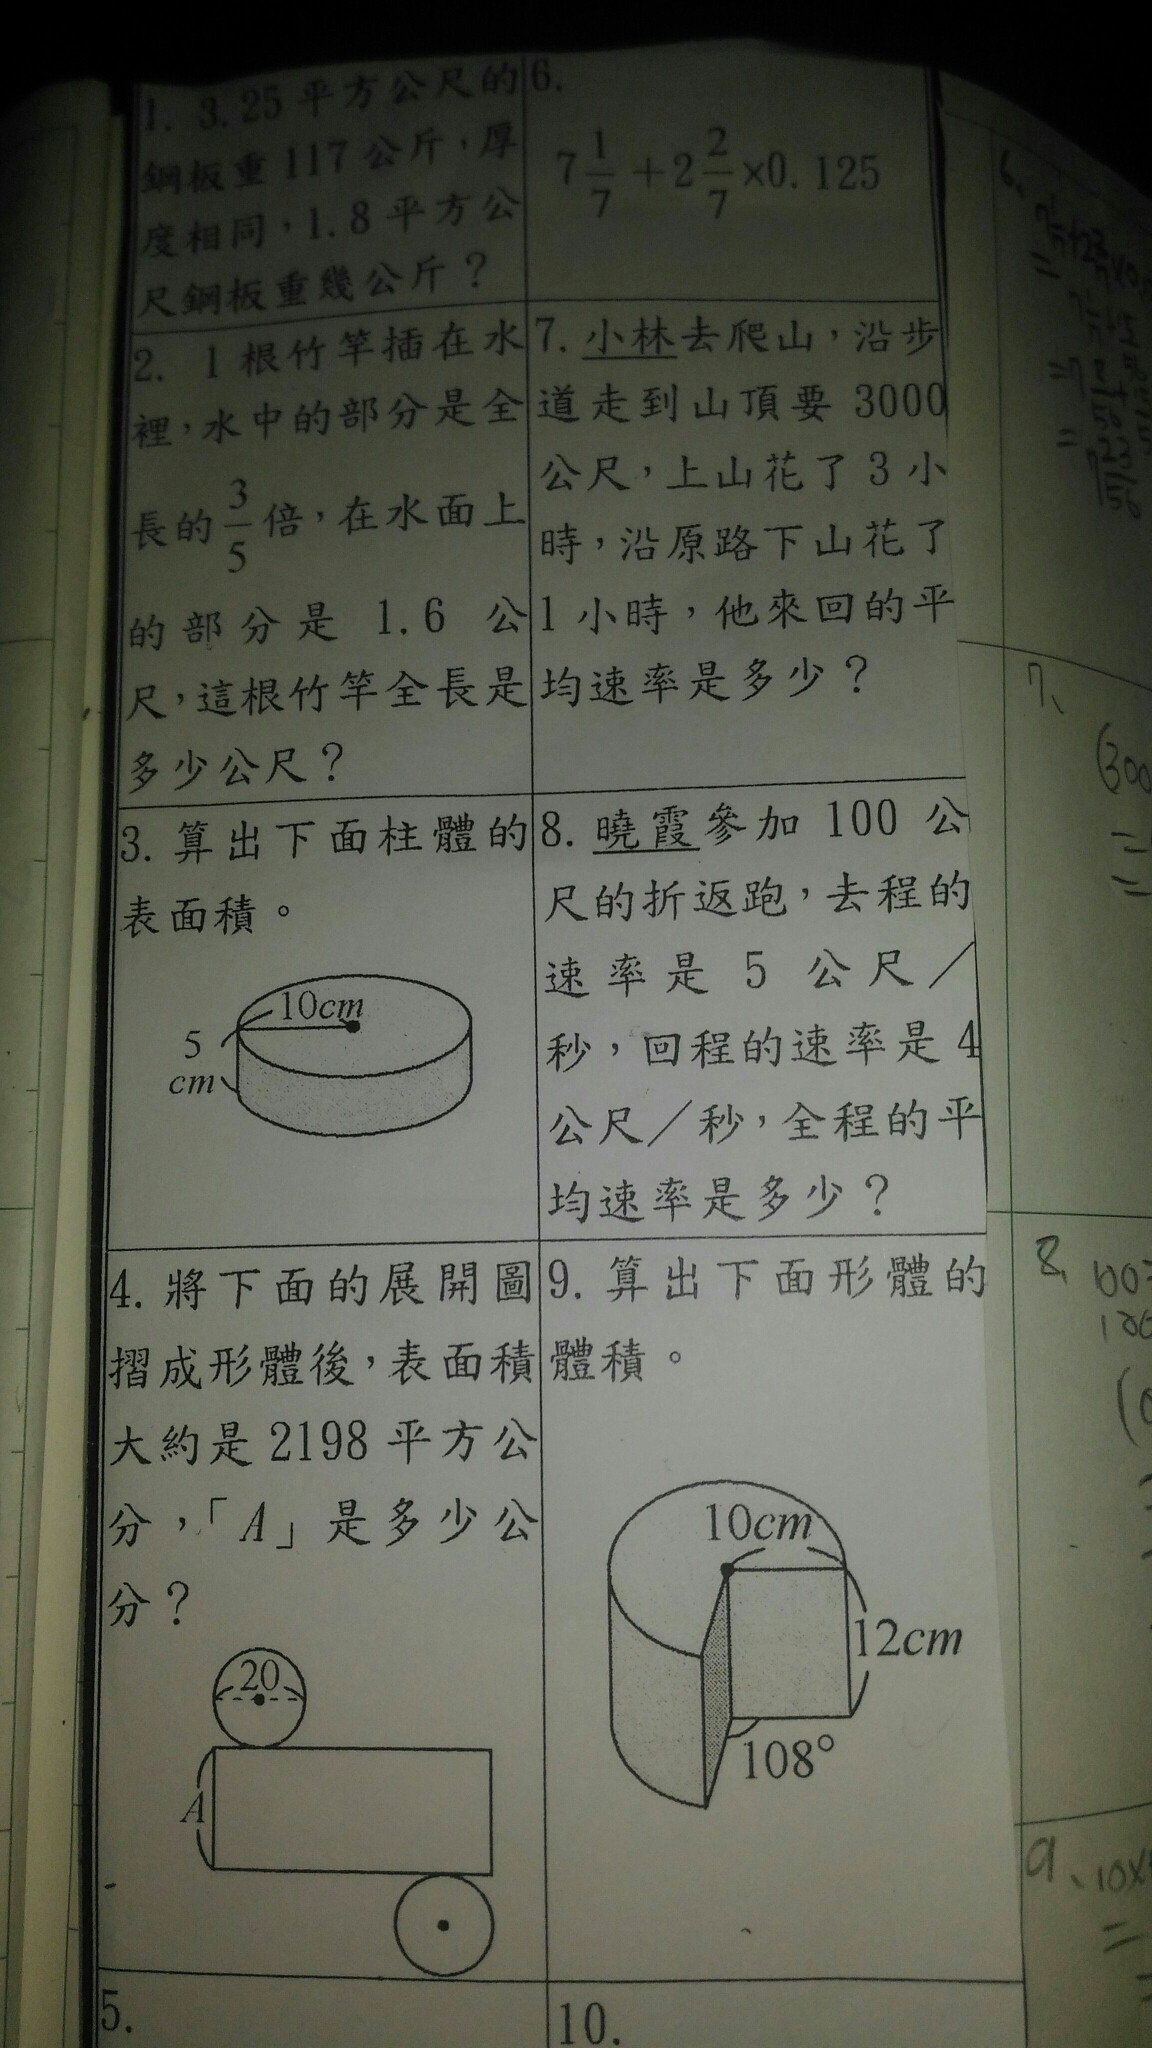 1. 3.25平方公尺的
鋼板重117公斤，厚
度相同，1.8平方公
尺鋼板重幾公斤？
2. 1根竹竿插在水
裡，水中的部分是全
長的3/5倍，在水面上
的部分是1.6公
尺，這根竹竿全長是
多少公尺？
3. 算出下面柱體的
表面積。
10cm
5
cm
4. 將下面的展開圖
摺成形體後，表面積
大約是2198平方公
分，「A」是多少公
分？
20
A
5.
6.
7 1/7 + 2 2/7 ×0.125
7. 小林去爬山，沿步
道走到山頂要3000
公尺，上山花了3小
時，沿原路下山花了
1小時，他來回的平
均速率是多少？
8. 曉霞參加100公
尺的折返跑，去程的
速率是5公尺／
秒，回程的速率是4
公尺／秒，全程的平
均速率是多少？
9. 算出下面形體的
體積。
10cm
12cm
108°
10.
6、
7、
8、
9、10×